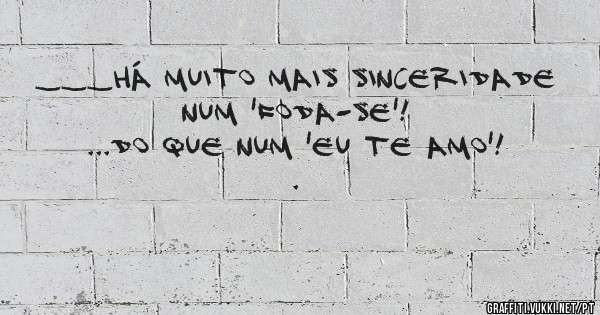 ___HÁ MUITO MAIS SINCERIDADE
NUM 'FODA-SE'!
...DO QUE NUM 'EU TE AMO'!
.
GRAFFITI.VUKKI.NET/PT